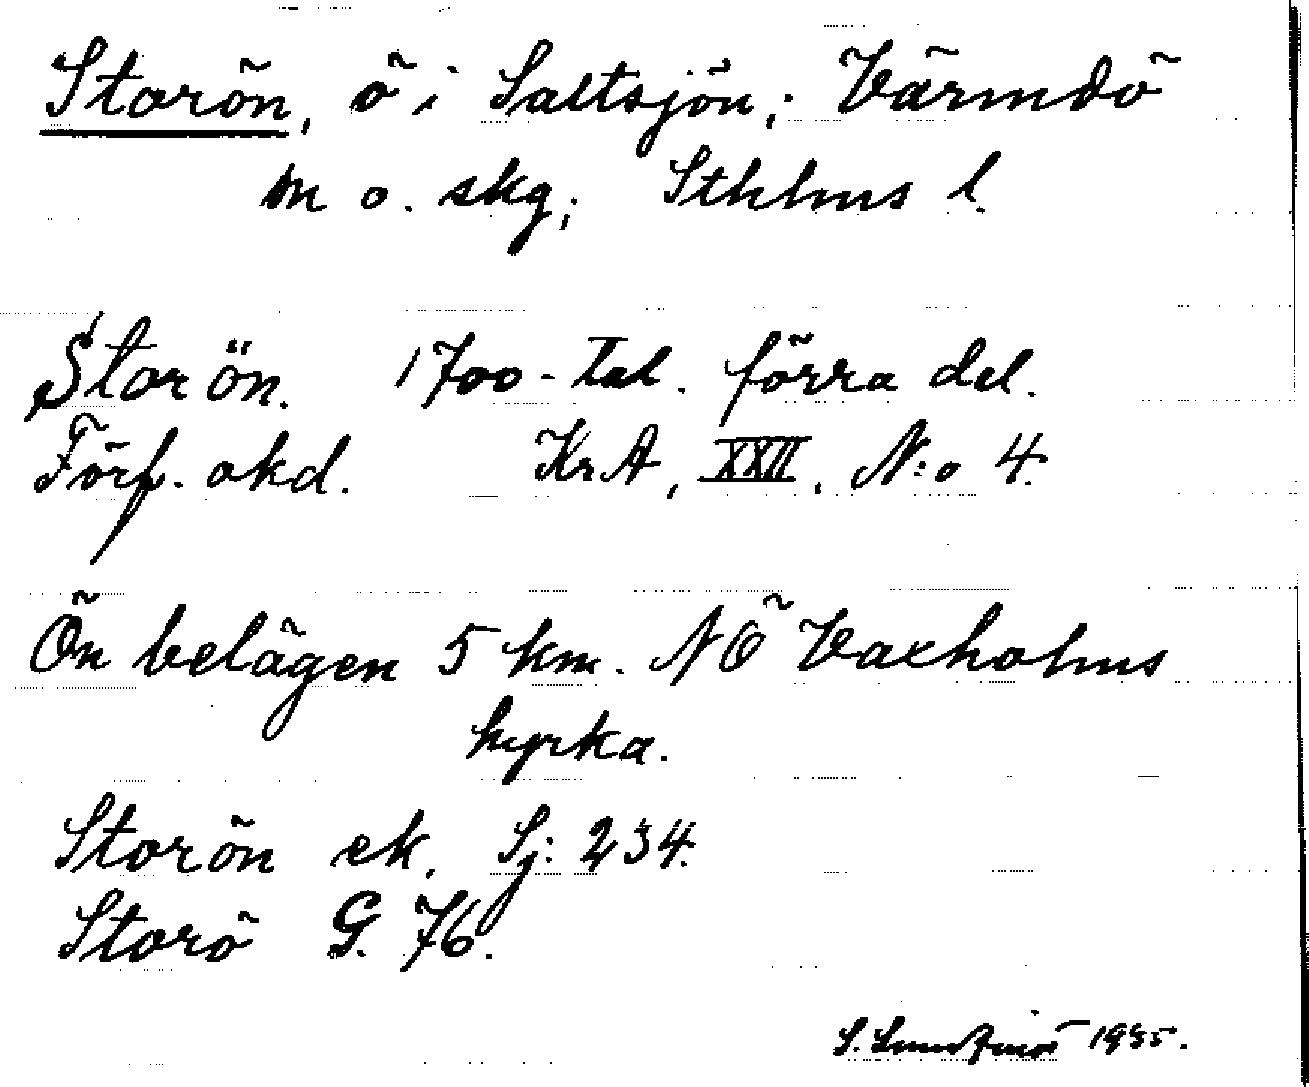 Storön, ö i Saltsjön; Värmdö
m o. skg; Sthlms l.
Storön. 1700-tal. förra del.
Förf. okd. KrA, XXII, N:o 4.
Ön belägen 5 km. NÖ Vaxholms
kyrka.
Storön ek. Sj: 234.
Storö G. 76.
S. 1935.